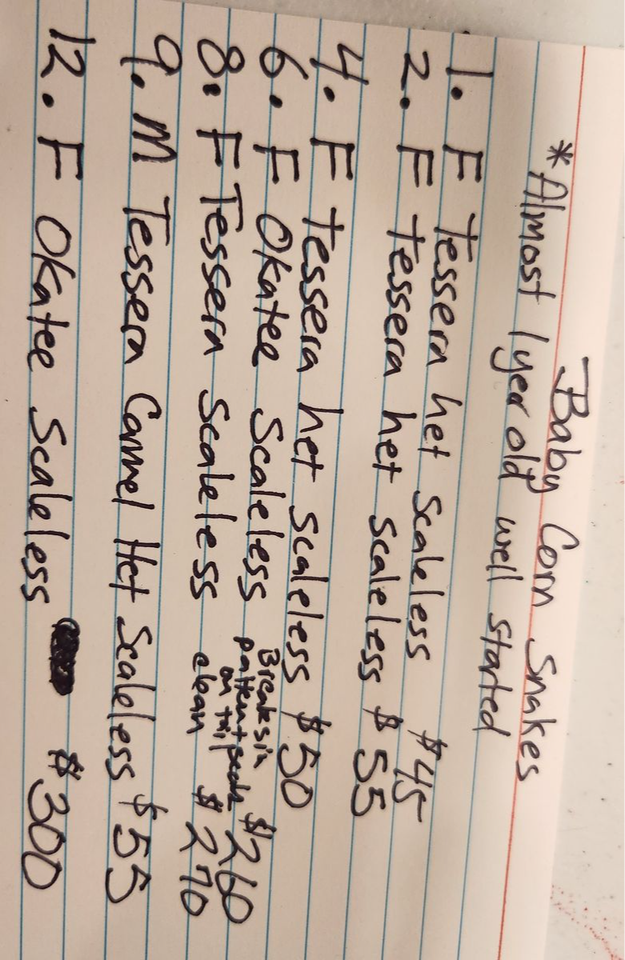 Baby Corn Snakes
*Almost 1 year old well started
1. F Tessera het scaleless $45
2. F tessera het scaleless $55
4. F tessera het scaleless $50
6. F Okatee Scaleless Breaks in pattern + on tail $260
8. F Tessera scaleless clean $270
9. M Tessera Carmel Het Scaleless $55
12. F Okatee Scaleless $300